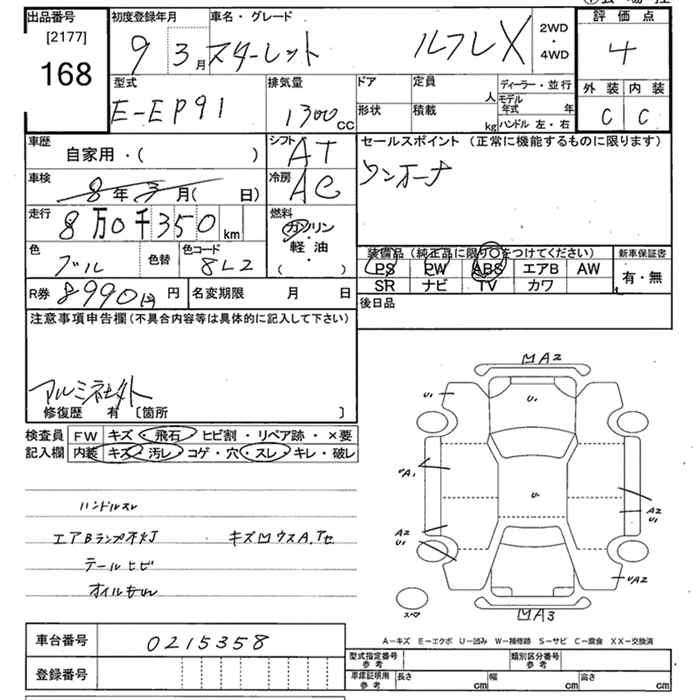 出品番号 初度登録年月 車名・グレード 2WD・4WD 評価点
[2177]
168
9 3月 スターレット ルフレ X 4
型式 排気量 ドア 定員 人 ディーラー・並行 外装 内装
E-EP91 1300 CC 形状 積載 kg モデル年式 年 C C
ハンドル 左・右
車歴 自家用・( ) シフト AT セールスポイント (正常に機能するものに限ります)
車検 8年3月( 日) 冷房 AC ワンオーナ
走行 8万0千350km 燃料 ガソリン・軽・油 ( )
色 ブル 色替 色コード 8L2
装備品 (純正品に限り○をつけてください) 新車保証書
PS PW ABS エアB AW 有・無
SR ナビ TV カワ
R券 8990円 円 名変期限 月 日 後日品
注意事項申告欄(不具合内容等は具体的に記入して下さい)
アルミ社外
修復歴 有 〔箇所 〕
検査員 FW キズ・飛石・ヒビ割・リペア跡・×要
記入欄 内装 キズ・汚レ・コゲ・穴・スレ・キレ・破レ
ハンドルスレ
エアBランプ不灯 キズ凹ウスA,Tセ
テールヒビ
オイルもれ
凹A2
U1 U.
UA1 U. A2 U1
A2 U1
UA2
スペア 凹A3
A-キズ E-エクボ U-凹み W-補修跡 S-サビ C-腐食 XX-交換済
車台番号 0215358
登録番号
型式指定番号 参考 類別区分番号 参考
車庫証明用 参考 長さ cm 幅 cm 高さ cm